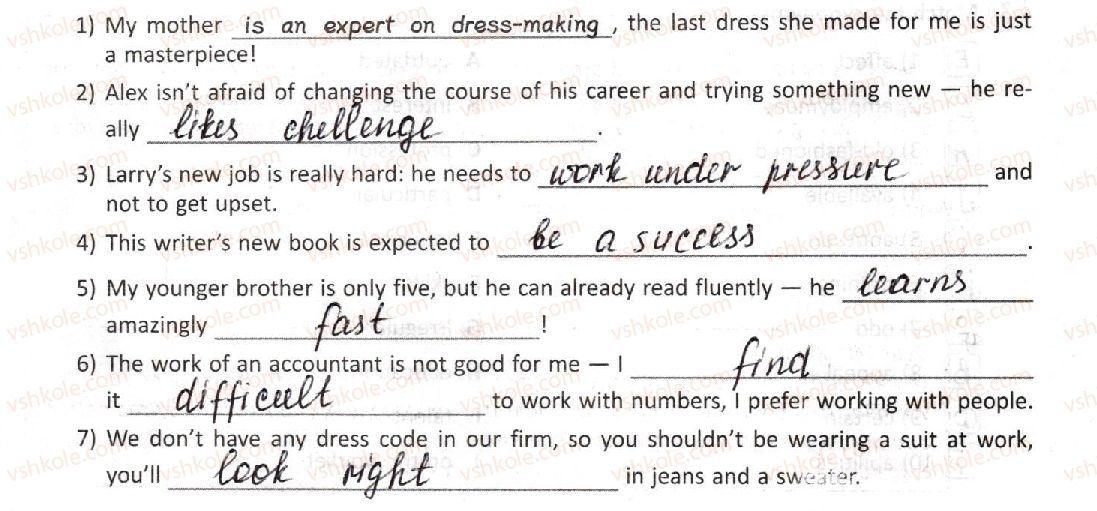 1) My mother is an expert on dress-making, the last dress she made for me is just
a masterpiece!
2) Alex isn't afraid of changing the course of his career and trying something new — he re-
ally likes chellenge.
3) Larry's new job is really hard: he needs to work under pressure and
not to get upset.
4) This writer's new book is expected to be a success.
5) My younger brother is only five, but he can already read fluently — he learns
amazingly fast!
6) The work of an accountant is not good for me — I find
it difficult to work with numbers, I prefer working with people.
7) We don't have any dress code in our firm, so you shouldn't be wearing a suit at work,
you'll look right in jeans and a sweater.